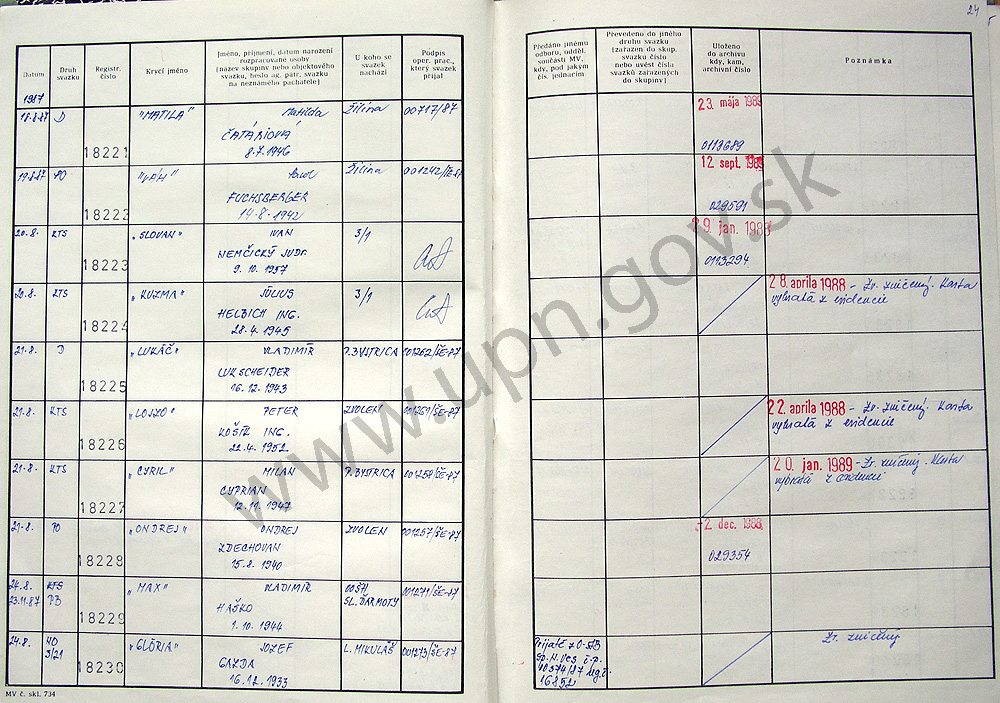 24
Datum
Druh
svazku
Registr.
číslo
Krycí jméno
Jméno, příjmení, datum narození
rozpracované osoby
(název skupiny nebo objektového
svazku, heslo ag. pátr. svazku
na neznámého pachatele)
U koho se
svazek
nachází
Podpis
oper. prac.,
který svazek
přijal
Předáno jinému
odboru, odděl.
součásti MV,
kdy, pod jakým
čís. jednacím
Převedeno do jiného
druhu svazku
(zařazen do skup.
svazku číslo
nebo uvést čísla
svazků zařazených
do skupiny)
Uloženo
do archivu
kdy, kam,
archivní číslo
Poznámka
1987
18.8.87 D 18221 "MATILA" Matilda Žilina 00717/87
ČATÁRIOVÁ
8.7.1946
23. mája 1989
0113689
19.8.87 PO 18222 Pavel Žilina
FUCHSBERGER
14.8.1942
12. sept. 1989
029591
20.8. KTS 18223 "SLOVAN" IVAN 3/1
NEMČICKÝ JUDr.
9.10.1957
29. jan. 1988
0113294
20.8. KTS 18224 "KUZMA" JÚLIUS 3/1
HELBICH ING.
28.4.1945
28. apríla 1988 - Zv. zničený. Karta
vybratá z evidencie
21.8. D 18225 "LUKÁČ" VLADIMÍR P. BYSTRICA 001262/ŠE-87
LUKSCHEIDER
16.12.1943
21.8. KTS 18226 "LOSZO" PETER ZVOLEN 001261/ŠE-87
KOŠÍK ING.
22.4.1952
22. apríla 1988 - Zv. zničený. Karta
vybratá z evidencie
21.8. KTS 18227 "CYRIL" MILAN P. BYSTRICA 001258/ŠE-87
CYPRIAN
12.11.1947
20. jan. 1989 - Zv. zničený. Karta
vybratá z evidencie
21.8. PO 18228 "ONDREJ" ONDREJ ZVOLEN 001257/ŠE-87
ZDECHOVAN
15.8.1940
-2. dec. 1988
029354
24.8. KTS 18229 "MAX" VLADIMÍR OOŠTI 001271/ŠE-87
23.11.87 PB HAŠKO SL. ĎARMOTY
1.10.1944
24.8. 18230 "GLÓRIA" JOZEF L. MIKULÁŠ 001273/ŠE-87
3/21 GAZDA
16.12.1933
Prijaté z O-ŠtB
Sp. N. Ves č.p.
16852
Zv. zničený
MV č. skl. 734
www.upn.gov.sk